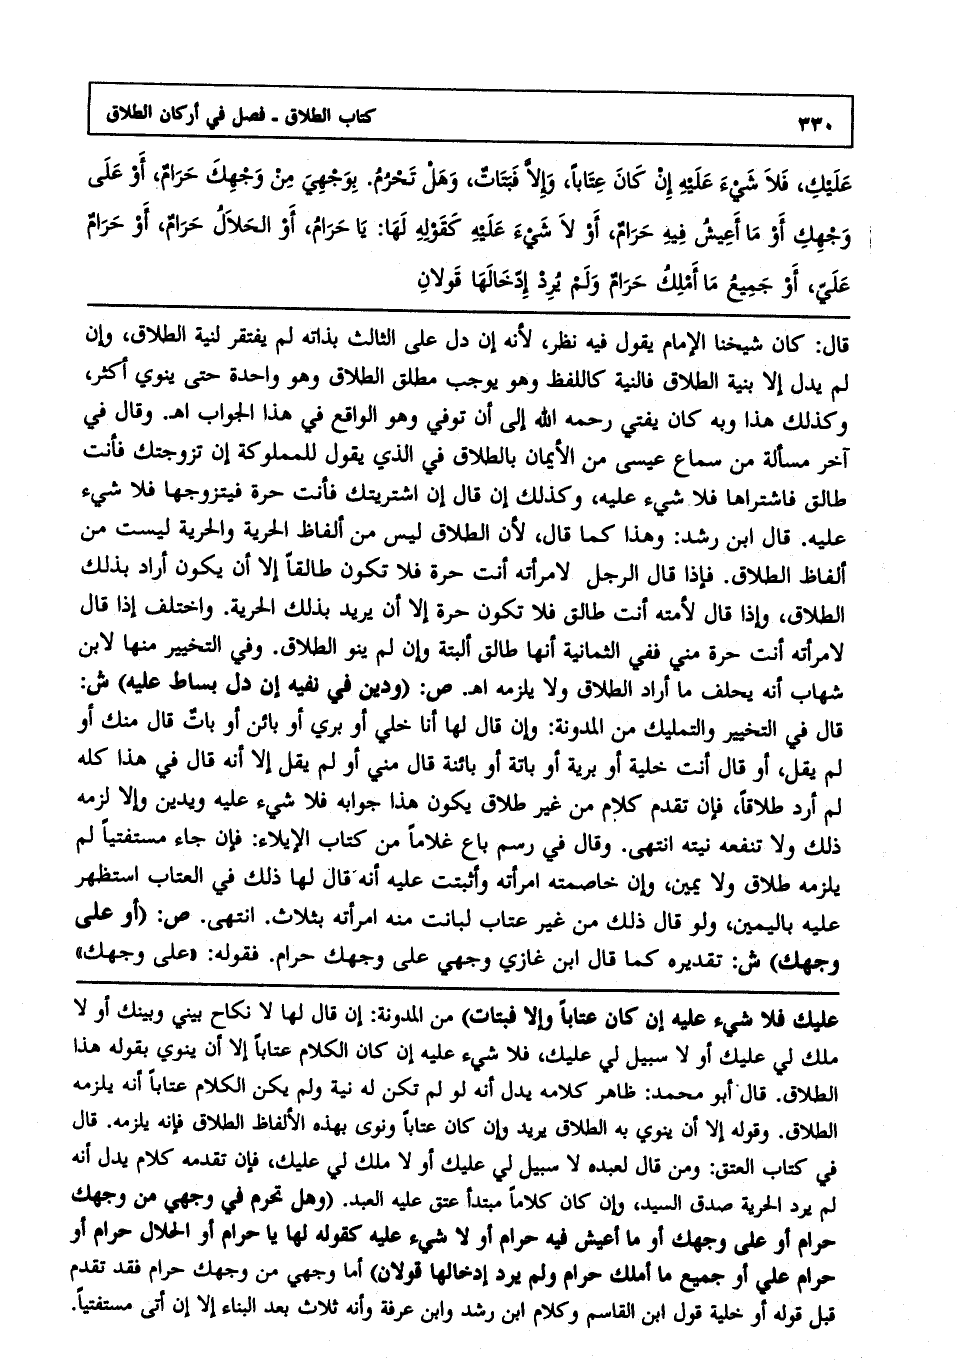 ٣٣٠ كتاب الطلاق ـ فصل في أركان الطلاق
عَلَيْكِ، فَلاَ شَيْءَ عَلَيْهِ إِنْ كَانَ عِتَاباً، وَإِلاَّ فَبَتَاتٌ، وَهَلْ تَحْرُمُ. بِوَجْهِيَ مِنْ وَجْهِكَ حَرَامٌ، أَوْ عَلَى
وَجْهِكِ أَوْ مَا أَعِيشُ فِيهِ حَرَامٌ، أَوْ لاَ شَيْءَ عَلَيْهِ كَقَوْلِهِ لَهَا: يَا حَرَامُ، أَوْ الحَلاَلُ حَرَامٌ، أَوْ حَرَامٌ
عَلَيّ، أَوْ جَمِيعُ مَا أَمْلِكُ حَرَامٌ وَلَمْ يُرِدْ إِدْخَالَهَا قَولانِ
قال: كان شيخنا الإمام يقول فيه نظر، لأنه إن دل على الثالث بذاته لم يفتقر لنية الطلاق، وإن
لم يدل إلا بنية الطلاق فالنية كاللفظ وهو يوجب مطلق الطلاق وهو واحدة حتى ينوي أكثر،
وكذلك هذا وبه كان يفتي رحمه الله إلى أن توفي وهو الواقع في هذا الجواب اهـ. وقال في
آخر مسألة من سماع عيسى من الأيمان بالطلاق في الذي يقول للمملوكة إن تزوجتك فأنت
طالق فاشتراها فلا شيء عليه، وكذلك إن قال إن اشتريتك فأنت حرة فيتزوجها فلا شيء
عليه. قال ابن رشد: وهذا كما قال، لأن الطلاق ليس من ألفاظ الحرية والحرية ليست من
ألفاظ الطلاق. فإذا قال الرجل لامرأته أنت حرة فلا تكون طالقاً إلا أن يكون أراد بذلك
الطلاق، وإذا قال لأمته أنت طالق فلا تكون حرة إلا أن يريد بذلك الحرية. واختلف إذا قال
لامرأته أنت حرة مني ففي الثمانية أنها طالق ألبتة وإن لم ينو الطلاق. وفي التخيير منها لابن
شهاب أنه يحلف ما أراد الطلاق ولا يلزمه اهـ. ص: (ودين في نفيه إن دل بساط عليه) ش:
قال في التخيير والتمليك من المدونة: وإن قال لها أنا خلي أو بري أو بائن أو باتٌ قال منك أو
لم يقل، أو قال أنت خلية أو برية أو باتة أو بائنة قال مني أو لم يقل إلا أنه قال في هذا كله
لم أرد طلاقاً، فإن تقدم كلام من غير طلاق يكون هذا جوابه فلا شيء عليه ويدين وإلا لزمه
ذلك ولا تنفعه نيته انتهى. وقال في رسم باع غلاماً من كتاب الإيلاء: فإن جاء مستفتياً لم
يلزمه طلاق ولا يمين، وإن خاصمته امرأته وأثبتت عليه أنه قال لها ذلك في العتاب استظهر
عليه باليمين، ولو قال ذلك من غير عتاب لبانت منه امرأته بثلاث. انتهى. ص: (أو على
وجهك) ش: تقديره كما قال ابن غازي وجهي على وجهك حرام. فقوله: «على وجهك»
عليك فلا شيء عليه إن كان عتاباً وإلا فبتات) من المدونة: إن قال لها لا نكاح بيني وبينك أو لا
ملك لي عليك أو لا سبيل لي عليك، فلا شيء عليه إن كان الكلام عتاباً إلا أن ينوي بقوله هذا
الطلاق. قال أبو محمد: ظاهر كلامه يدل أنه لو لم تكن له نية ولم يكن الكلام عتاباً أنه يلزمه
الطلاق. وقوله إلا أن ينوي به الطلاق يريد وإن كان عتاباً ونوى بهذه الألفاظ الطلاق فإنه يلزمه. قال
في كتاب العتق: ومن قال لعبده لا سبيل لي عليك أو لا ملك لي عليك، فإن تقدمه كلام يدل أنه
لم يرد الحرية صدق السيد، وإن كان كلاماً مبتدأ عتق عليه العبد. (وهل تحرم في وجهي من وجهك
حرام أو على وجهك أو ما أعيش فيه حرام أو لا شيء عليه كقوله لها يا حرام أو الحلال حرام أو
حرام علي أو جميع ما أملك حرام ولم يرد إدخالها قولان) أما وجهي من وجهك حرام فقد تقدم
قبل قوله أو خلية قول ابن القاسم وكلام ابن رشد وابن عرفة وأنه ثلاث بعد البناء إلا إن أتى مستفتياً.